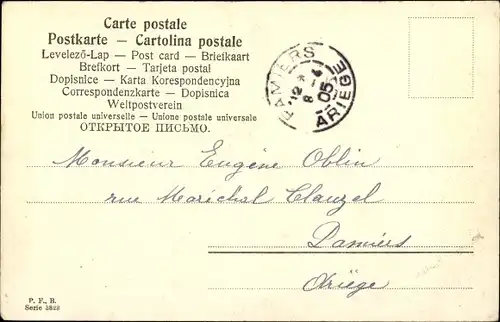 Carte postale
Postkarte – Cartolina postale
Levelező-Lap — Post card — Briefkaart
Brefkort – Tarjeta postal
Dopisnice - Karta Korespondencyjna
Correspondenzkarte – Dopisnica
Weltpostverein
Union postale universelle – Unione postale universale
ОТКРЫТОЕ ПИСЬМО.
PAMIERS
12 * 6
8 05
ARIEGE
Monsieur Eugène Oblin
rue Maréchal Clauzel
Pamiers
Ariège
P. F., B.
Serie 3823